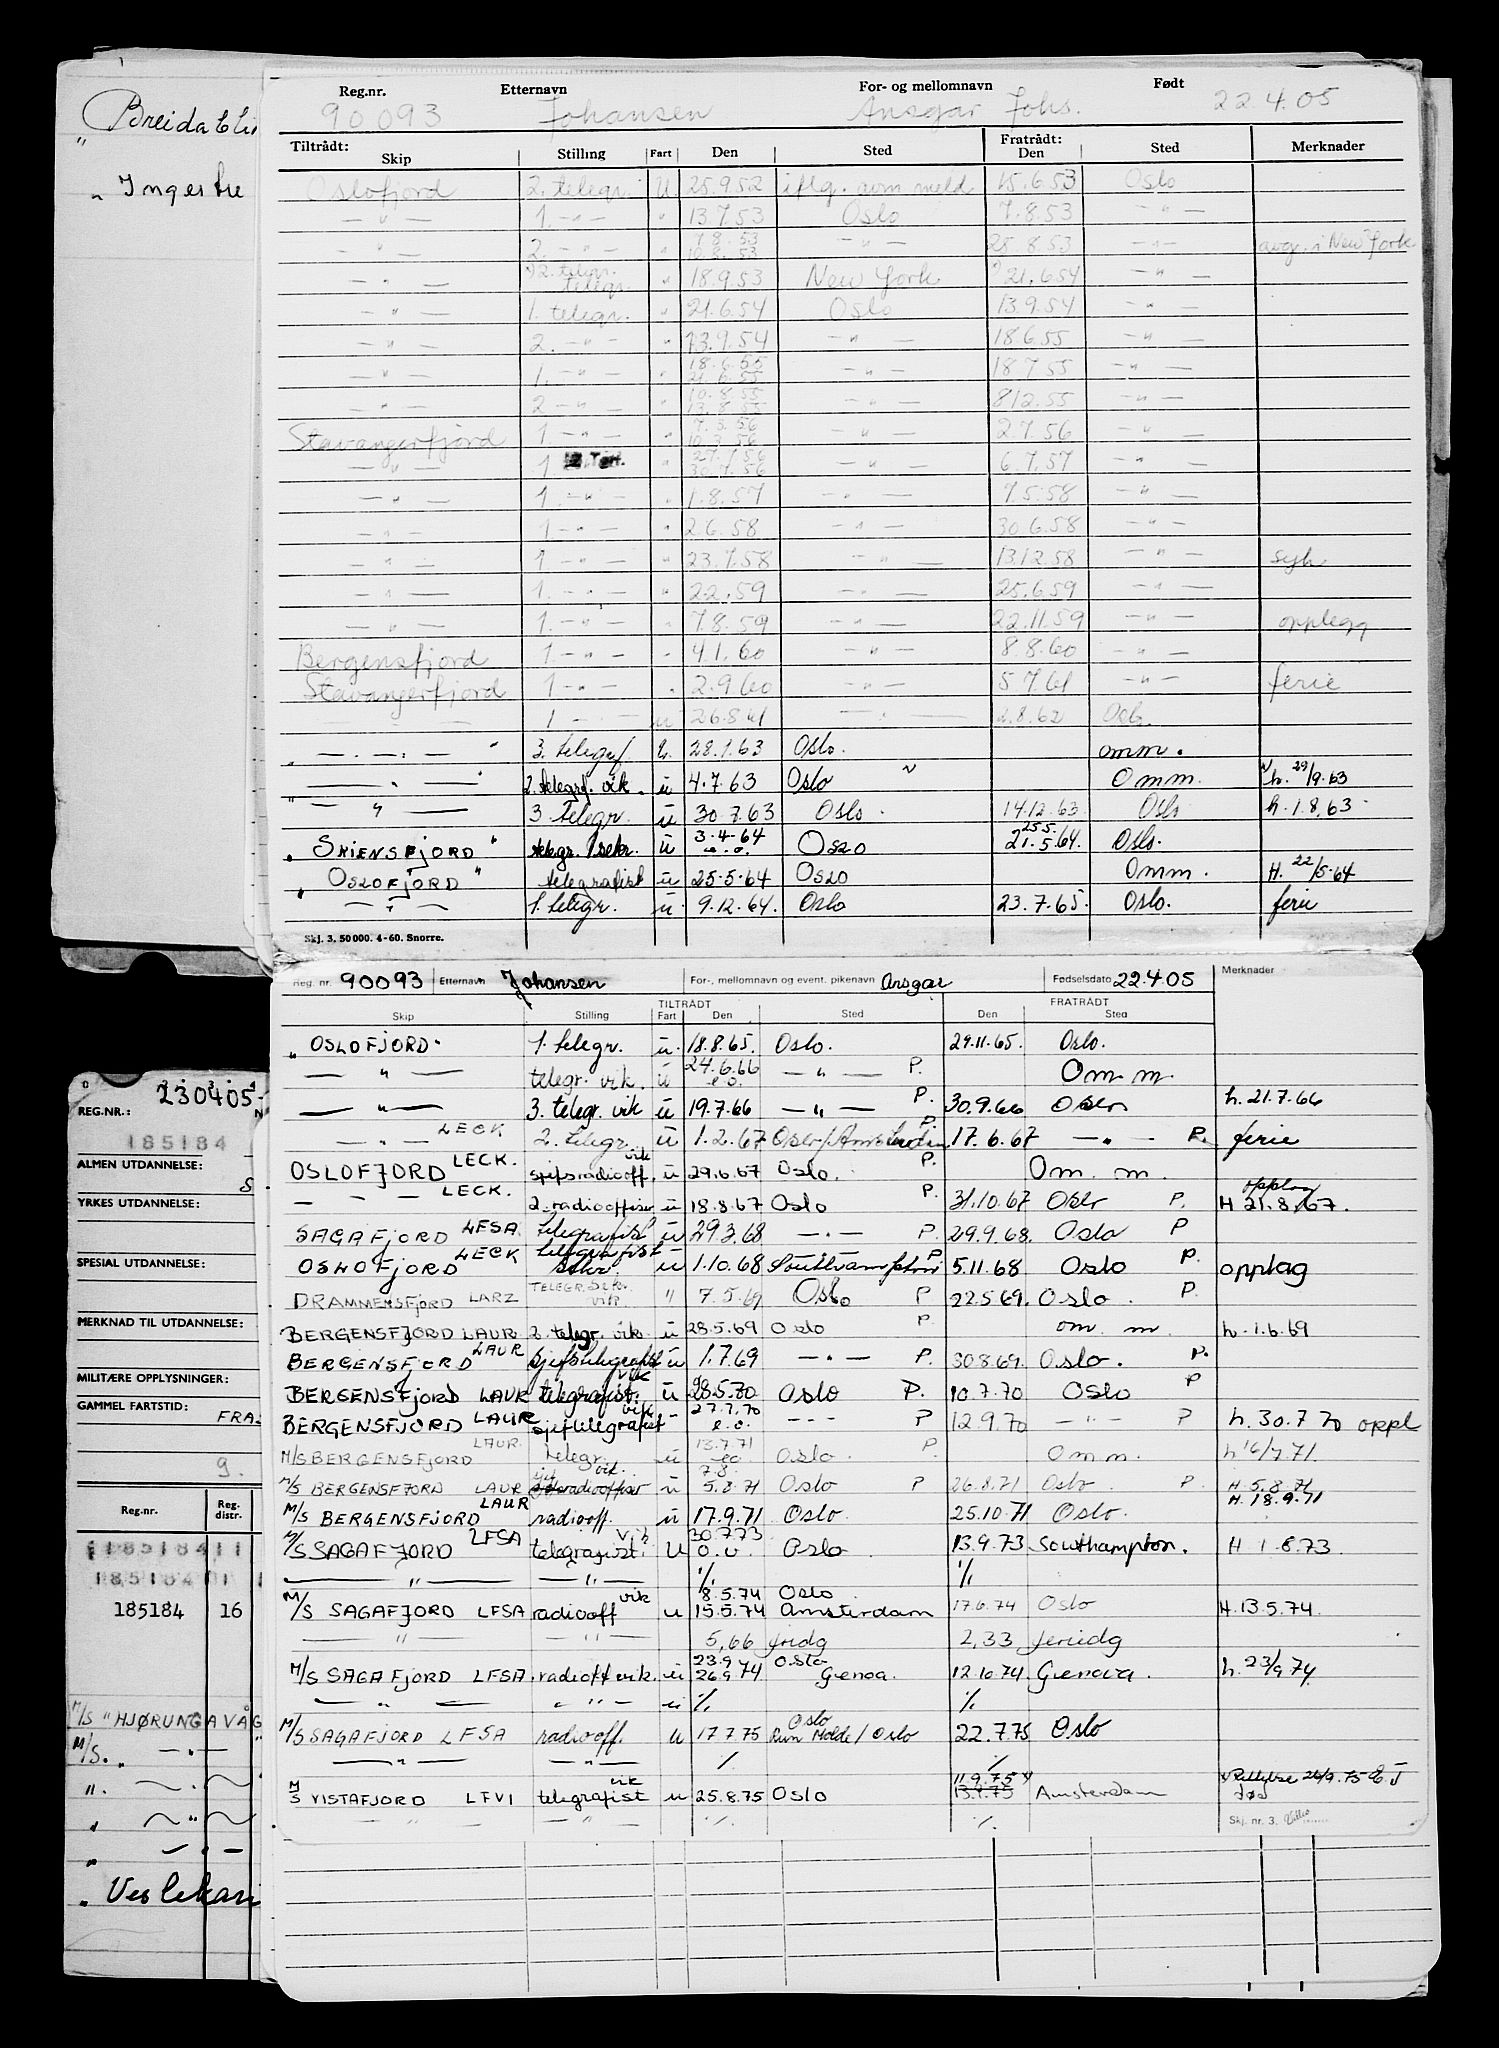 Breidabli
" Ingerfire
Reg.nr. Etternavn For- og mellomnavn Født
90093 Johansen Ansgar Johs. 22.4.05
Tiltrådt: Fratrådt:
Skip Stilling Fart Den Sted Den Sted Merknader
Oslofjord 2. telegr. U. 25.9.52 iflg. avm. meld 15.6.53 Oslo
— " — 1. — " — " 13.7.53 Oslo 7.8.53 — " —
— " — 2. — " — " 7.8.53 10.8.53 — " — 25.8.53 — " — avg. i New York
— " — 2. telegr. telegr. " 18.9.53 New York 21.6.54 — " —
— " — 1. telegr. " 21.6.54 Oslo 13.9.54 — " —
— " — 2. — " — " 13.9.54 — " — 18.6.55 — " —
— " — 1. — " — " 18.6.55 21.6.55 — " — 18.7.55 — " —
— " — 2 — " — " 10.8.55 13.8.55 — " — 8.12.55 — " —
Stavangerfjord 1 — " — " 7.3.56 10.3.56 — " — 2.7.56 — " —
— " — 1 " 27.7.56 30.7.56 — " — 6.7.57 — " —
— " — 1 — " — " 1.8.57 — " — 7.5.58 — " —
— " — 1 — " — " 2.6.58 — " — 30.6.58 — " —
— " — 1 — " — " 23.7.58 — " — 13.12.58 — " — syk
— " — 1. — " — " 2.2.59 — " — 25.6.59 — " —
— " — 1. — " — " 7.8.59 — " — 22.11.59 — " — opplegg
Bergensfjord 1 — " — " 4.1.60 — " — 8.8.60 — " —
Stavangerfjord 1 — " — " 2.9.60 — " — 5.7.61 — " — ferie
1 — " — u 26.8.61 — " — 2.8.62 Oslo.
" — " — " 3. telegrf u. 28.1.63 Oslo. omm.
— " — 2. telegrf. vik. u 4.7.63 Oslo Omm. h. 29/9.63
" — " — 3 telegr. u 30.7.63 Oslo. 14.12.63 Oslo h. 1.8.63
" SKIENSFJORD " telegr./sekr. u 3.4.64 e.o. OSLO 25.5. 21.5.64. Oslo.
" OSLOFJORD " telegrafist u 25.5.64 OSLO Omm. H. 22/5.64
— " — 1. telegr. u. 9.12.64. Oslo 23.7.65. Oslo. ferie
Skj. 3. 50 000. 4-60. Snorre.
Reg. nr. 90093 Etternavn Johansen For-, mellomnavn og event. pikenavn Ansgar Fødselsdato 22.4.05 Merknader
TILTRÅDT FRATRÅDT
Skip Stilling Fart Den Sted Den Sted
" OSLOFJORD " 1. telegr. u. 18.8.65. Oslo. 29.11.65. Oslo.
— " — telegr. vik. u 24.6.66 e.o. — " — P. Om m.
— " — 3. telegr. vik u 19.7.66 — " — P. 30.9.66 Oslo h. 21.7.66
— " — LECK 2. telegr. u 1.2.67 Oslo/Amsterdam P. 17.6.67 — " — P. ferie
OSLOFJORD LECK. sjefsradiooff. vik u 29.6.67 Oslo. P. Om. m.
— " — LECK. 2. radiooffiser u 18.8.67 Oslo P. 31.10.67 Oslo P. H 21.8.67. opplag
SAGAFJORD LFSA. telegrafist u 29.3.68 — " — P. 29.9.68. Oslo P
OSLOFJORD LECK telegrafist sekr. u 1.10.68 Southampton P 5.11.68 Oslo P. opplag
DRAMMENSFJORD LARZ TELEGR. Sekr. vik " 7.5.69 Oslo P 22.5.69. Oslo. P.
BERGENSFJORD LAUR 2. telegr. vik u 28.5.69 Oslo P om. m. h. 1.6.69
BERGENSFJORD LAUR sjefstelegrafist u 1.7.69 — " — P. 30.8.69. Oslo. P.
BERGENSFJORD LAUR telegrafist. vik u 28.5.70 Oslo P. 10.7.70 Oslo P
BERGENSFJORD LAUR sjeftelegrafist vik 27.7.70 e.o. — — — P 12.9.70 — " — P h. 30.7 70 oppl
M/S BERGENSFJORD LAUR. telegr. u 13.7.71 eo Oslo. P. Omm. h 16/7.71.
M/S BERGENSFJORD LAUR sj. vik. radiooffiser u 7.8. 5.8.71 Oslo P 26.8.71 Oslo. P. H 5.8.71
M/S BERGENSFJORD LAUR radiooff. u 17.9.71 Oslo. 25.10.71 Oslo. H. 18.9.71
M/S SAGAFJORD LFSA telegrafist. vik U 30.7.73 o.v. Oslo. 13.9.73 Southampton. H 1.8.73.
— " — — " — ·/. ·/.
M/S SAGAFJORD LFSA radiooff vik u 8.5.74 Oslo 15.5.74 Amsterdam 17.6.74 Oslo H.13.5.74.
— " — — " — 5,66 fridg 2,33 feriedg
M/S SAGAFJORD LFSA. radiooff vik. u 23.9 Oslo 26.9.74 Genoa. 12.10.74 Genova. h. 23/9 74.
— " — — " — u ·/. ·/.
M/S SAGAFJORD LFSA radiooff. u 17.7.75 Oslo Run Molde/Oslo 22.7.75 Oslo
— " — — " — ·/. ·/.
M/S VISTAFJORD LFVI telegrafist vik u 25.8.75 Oslo 11.9.75 x) 13.9.75 Amsterdam x) Rettelse 26/9.75 død
— " — ·/. ·/. Skj. nr. 3.
230405
REG.NR.:
185184
ALMEN UTDANNELSE:
S
YRKES UTDANNELSE:
SPESIAL UTDANNELSE:
MERKNAD TIL UTDANNELSE:
MILITÆRE OPPLYSNINGER:
GAMMEL FARTSTID: FRA
9.
Reg.nr. Reg. distr.
185184 11
185184 01
185184 16
M/S "HJØRUNGAVÅG
M/S. " — " —
" Veslekari